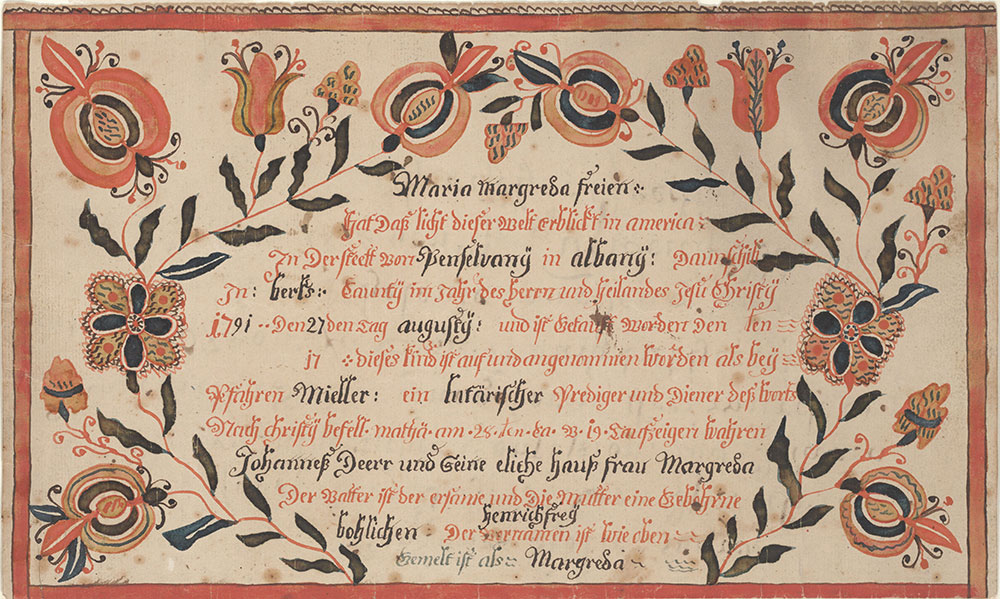 Maria Margreda freien :
hat Daß licht dieser Welt Erblickt in america :
In Der steett Von Penselvany in albany : Daunschib
In : berks : Caunty im Jahr des herrn und heilandes Jesu Christy
1791 .. Den 27 den Tag augusty : und ist Getauft Worden Den ten
in : dieses kind ist auf und angenommen worden als bey
Pfahren Mieller : ein lutärischer Prediger und Diener deß worts
Nach christy befelt mathä . am . 28 . ten . Ca . v . 19 . Taufzeigen wahren
Johanneß Deerr und Seine eliche hauß frau Margreda
Der Vatter ist der ersame und Die Mutter eine Gebohrne
henrich frey
bohlichen . Der vornamen ist wie oben
Gemelt ist als Margreda